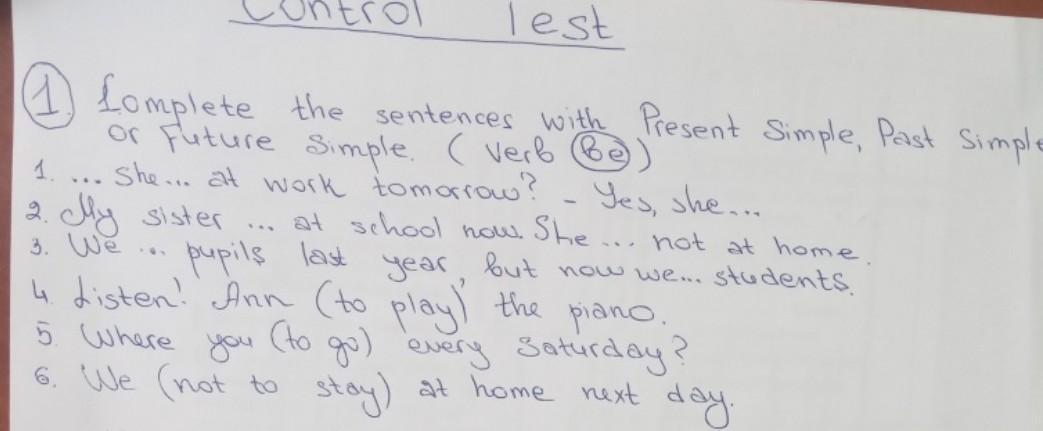 Control Test
1. Complete the sentences with Present Simple, Past Simple
or Future Simple. (Verb Be)
1. ... She... at work tomorrow? - Yes, she...
2. My sister ... at school now. She ... not at home.
3. We ... pupils last year, but now we... students.
4. Listen! Ann (to play) the piano.
5. Where you (to go) every Saturday?
6. We (not to stay) at home next day.